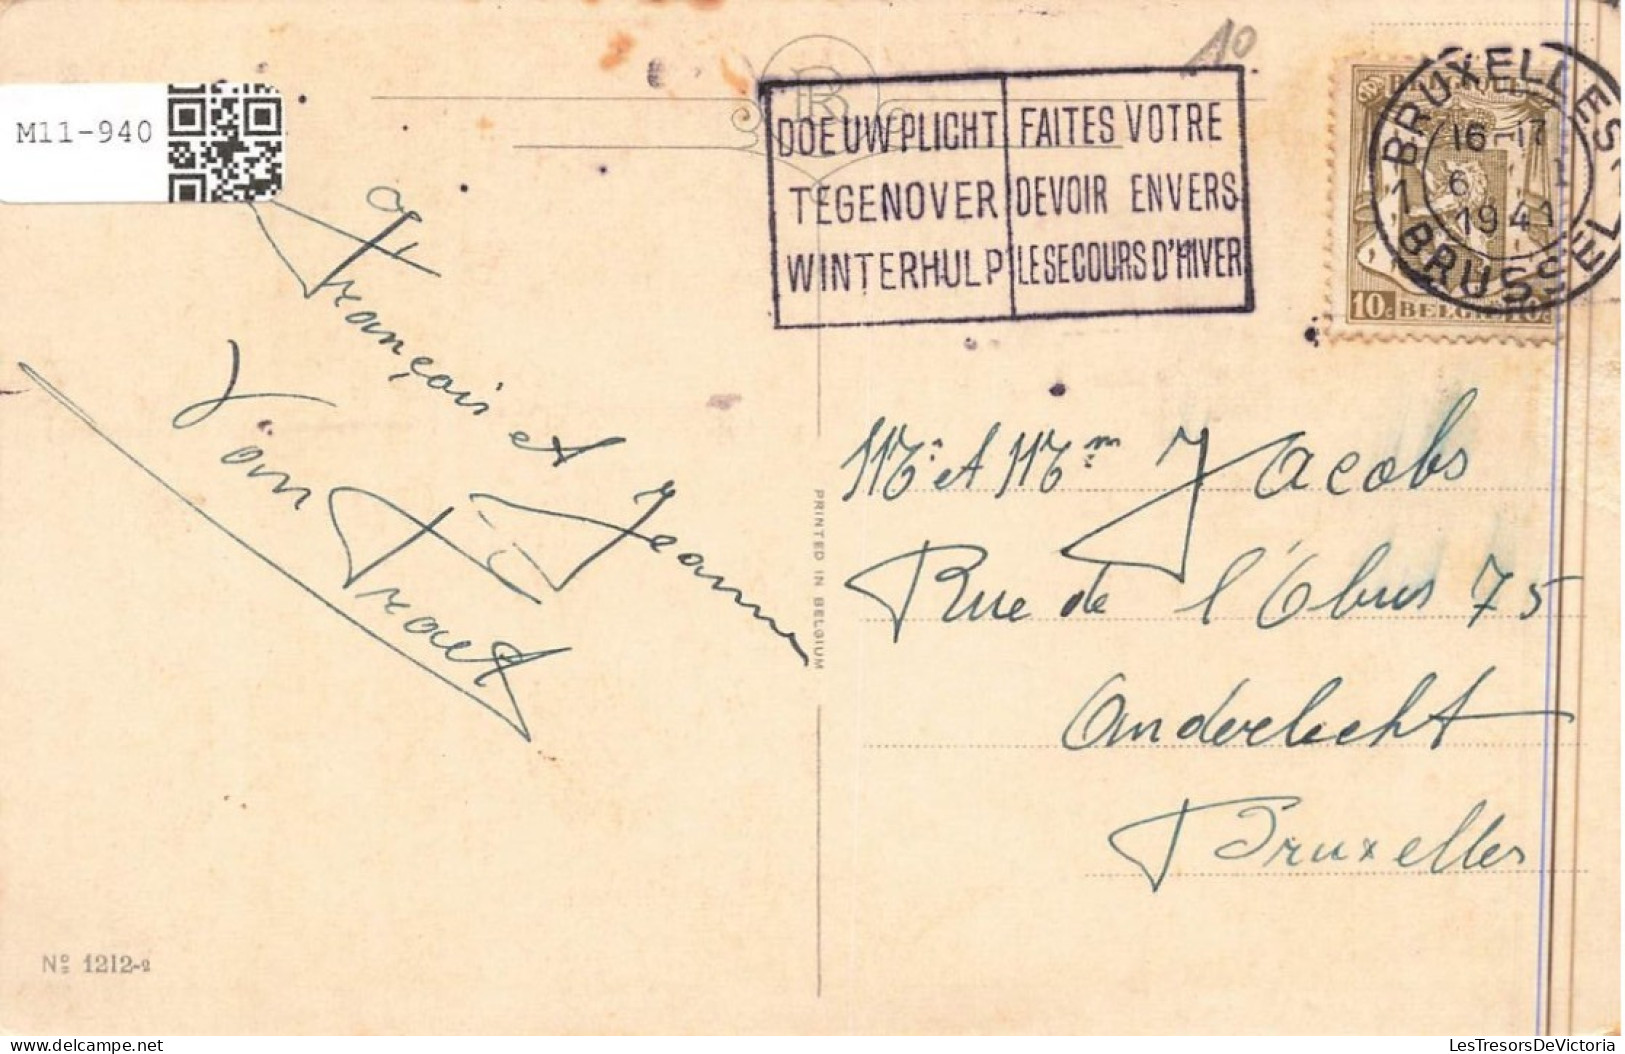 M11-940
R
10
DOE UW PLICHT
TEGENOVER
WINTERHULP
FAITES VOTRE
DEVOIR ENVERS
LE SECOURS D'HIVER
BRUXELLES 1
16-17
6
1941
1 BRUSSEL
10c BELGIE 10c
François et Jeanne
Van
Mr et Mme Jacobs
Rue de l'Obus 75
Anderlecht
Bruxelles
PRINTED IN BELGIUM
Nº 1212-2
LesTresorsDeVictoria
delcampe.net